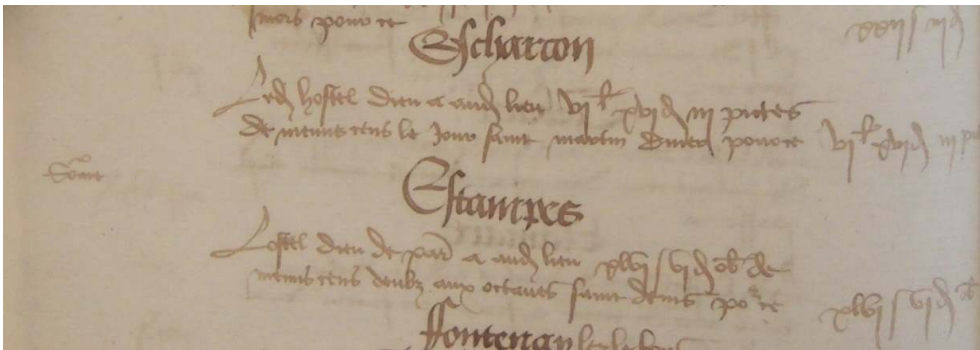 mors pour ce
Escharcon
Led hostel dieu a aud lieu vi l xvi d iii pictes
de menus cens le Jour saint martin diver pour ce vi l xvi d iii p
Estampes
Lostel dieu de par a aud lieu xlvi s vi d ob de
menus cens deubz aux octaves saint denis po ce xlvi s vi d ob
ffontenay